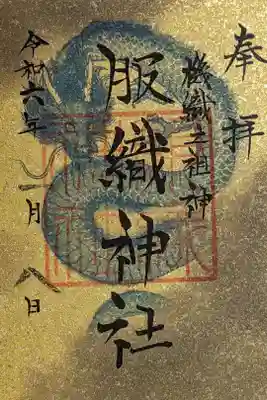 奉拝
機織之祖神
服織神社
令和六年
一月八日